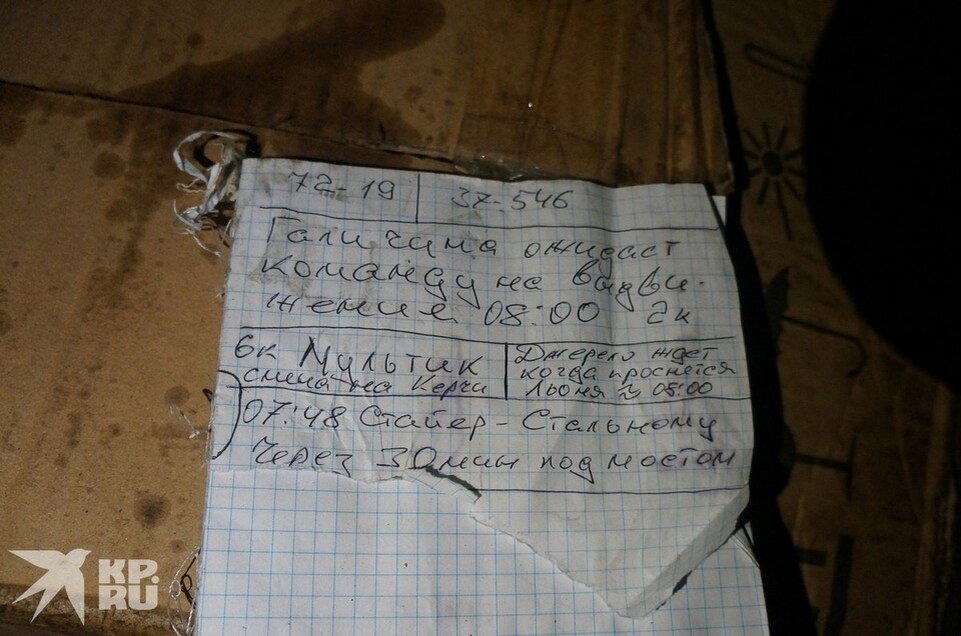 72-19 37-546
Галичина ожидает
команду на выдви-
жения 08:00 2к
6к Мультик
смена на Керчи
Джерело ждет
когда проснется
Льоня ≈ 05:00
07:48 Стайер - Стальному
Через 30 мин под мостом
KP.RU